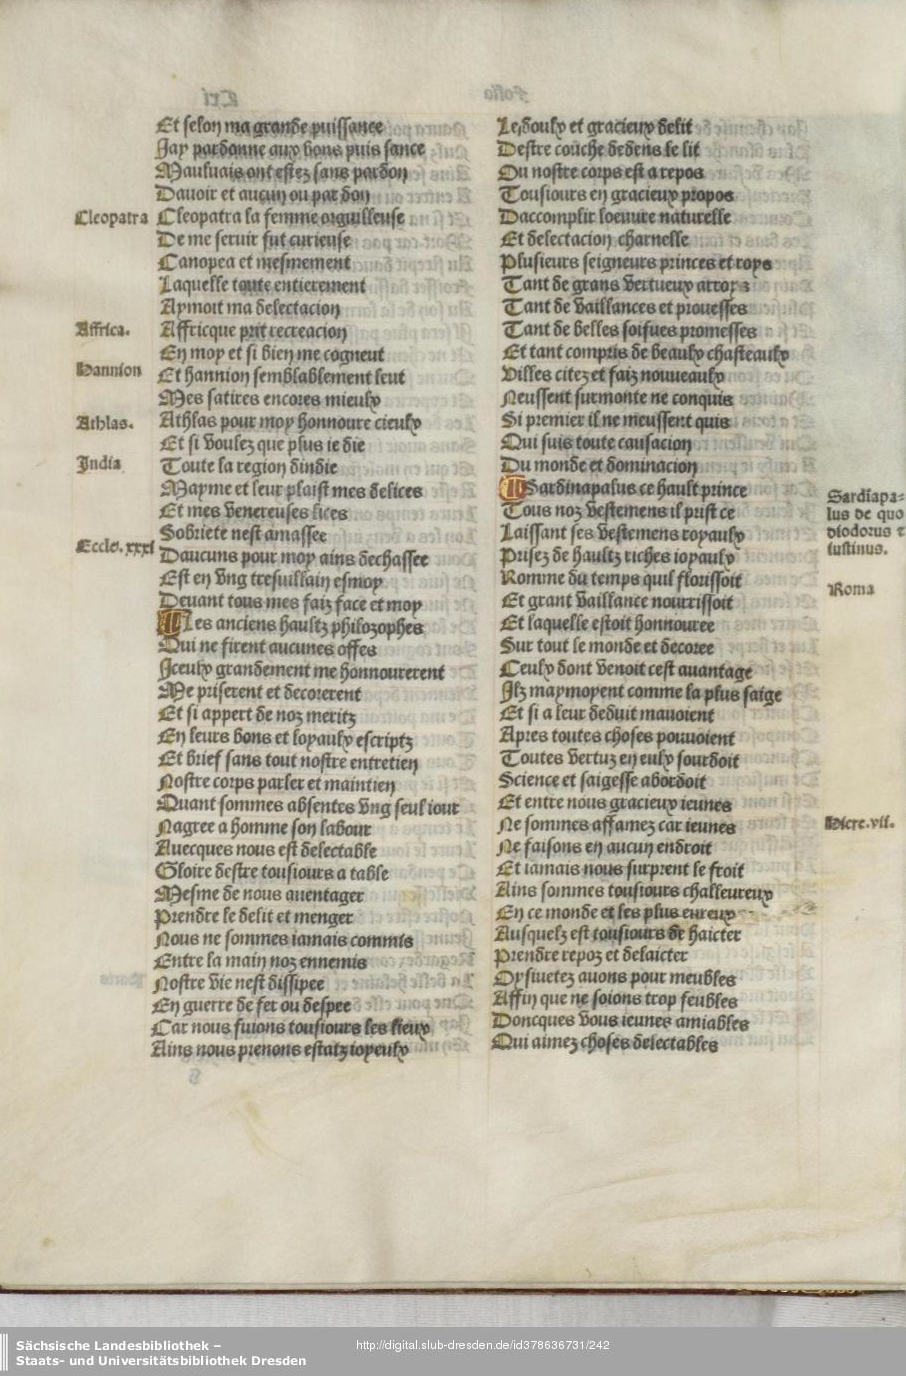 Et selon ma grande puissance
Jay pardonne aux bons puis sance
Mauluais ont estez sans pardon
Dauoir et aucun ou par don
Cleopatra
Cleopatra la femme orguilleuse
De me seruir fut curieuse
Canopea et mesmement
Laquelle toute entierement
Aymoit ma delectacion
Affrica.
Affricque prit recreacion
En moy et si bien me cogneut
Hannion
Et hannion semblablement leut
Mes satires encores mieulx
Athlas.
Athlas pour moy honnoure cieulx
Et si voulez que plus ie die
India
Toute la region dindie
Mayme et leur plaist mes delices
Et mes venereuses lices
Sobriete nest amassee
Eccle. xxxi
Daucuns pour moy ains dechassee
Est en vng tresuillain esmoy
Deuant tous mes faiz face et moy
Les anciens haultz philozophes
Qui ne firent aucunes offes
Iceulx grandement me honnourerent
Me priserent et decorerent
Et si appert de noz meritz
En leurs bons et loyaulx escriptz
Et brief sans tout nostre entretien
Nostre corps parler et maintien
Quant sommes absentes vng seul iour
Nagree a homme son labour
Auecques nous est delectable
Gloire destre tousiours a table
Mesme de nous auentager
Prendre le delit et menger
Nous ne sommes iamais commis
Entre la main noz ennemis
Nostre vie nest dissipee
En guerre de fer ou despee
Car nous fuions tousiours les lieux
Ains nous prenons estatz ioyeulx
Le doulx et gracieux delit
Destre couche dedens le lit
Ou nostre corps est a repos
Tousiours en gracieux propos
Daccomplir loeuure naturelle
Et delectacion charnelle
Plusieurs seigneurs princes et roys
Tant de grans vertueux arroyz
Tant de vaillances et prouesses
Tant de belles soifues promesses
Et tant compris de beaulx chasteaulx
Villes citez et faiz nouueaulx
Neussent surmonte ne conquis
Si premier il ne meussent quis
Qui suis toute causacion
Du monde et dominacion
Sardinapalus ce hault prince
Tous noz vestemens il prist ce
Laissant ses vestemens royaulx
Prisez de haultz riches ioyaulx
Romme du temps quil florissoit
Et grant vaillance nourrissoit
Et laquelle estoit honnouree
Sur tout le monde et decoree
Ceulx dont venoit cest auantage
Ilz maymoyent comme la plus saige
Et si a leur deduit mauoient
Apres toutes choses pouuoient
Toutes vertuz en eulx sourdoit
Science et saigesse abordoit
Et entre nous gracieux ieunes
Ne sommes affamez car ieunes
Ne faisons en aucun endroit
Et iamais nous surprent le froit
Ains sommes tousiours challeureux
En ce monde et les plus eureux
Ausquelz est tousiours de haicter
Prendre repoz et delaicter
Oysiuetez auons pour meubles
Affin que ne soions trop feubles
Doncques vous ieunes amiables
Qui aimez choses delectables
Sardiapa-
lus de quo
diodorus et
iustinus.
Roma
Hiere. vii.
Sächsische Landesbibliothek –
Staats- und Universitätsbibliothek Dresden
http://digital.slub-dresden.de/id378636731/242